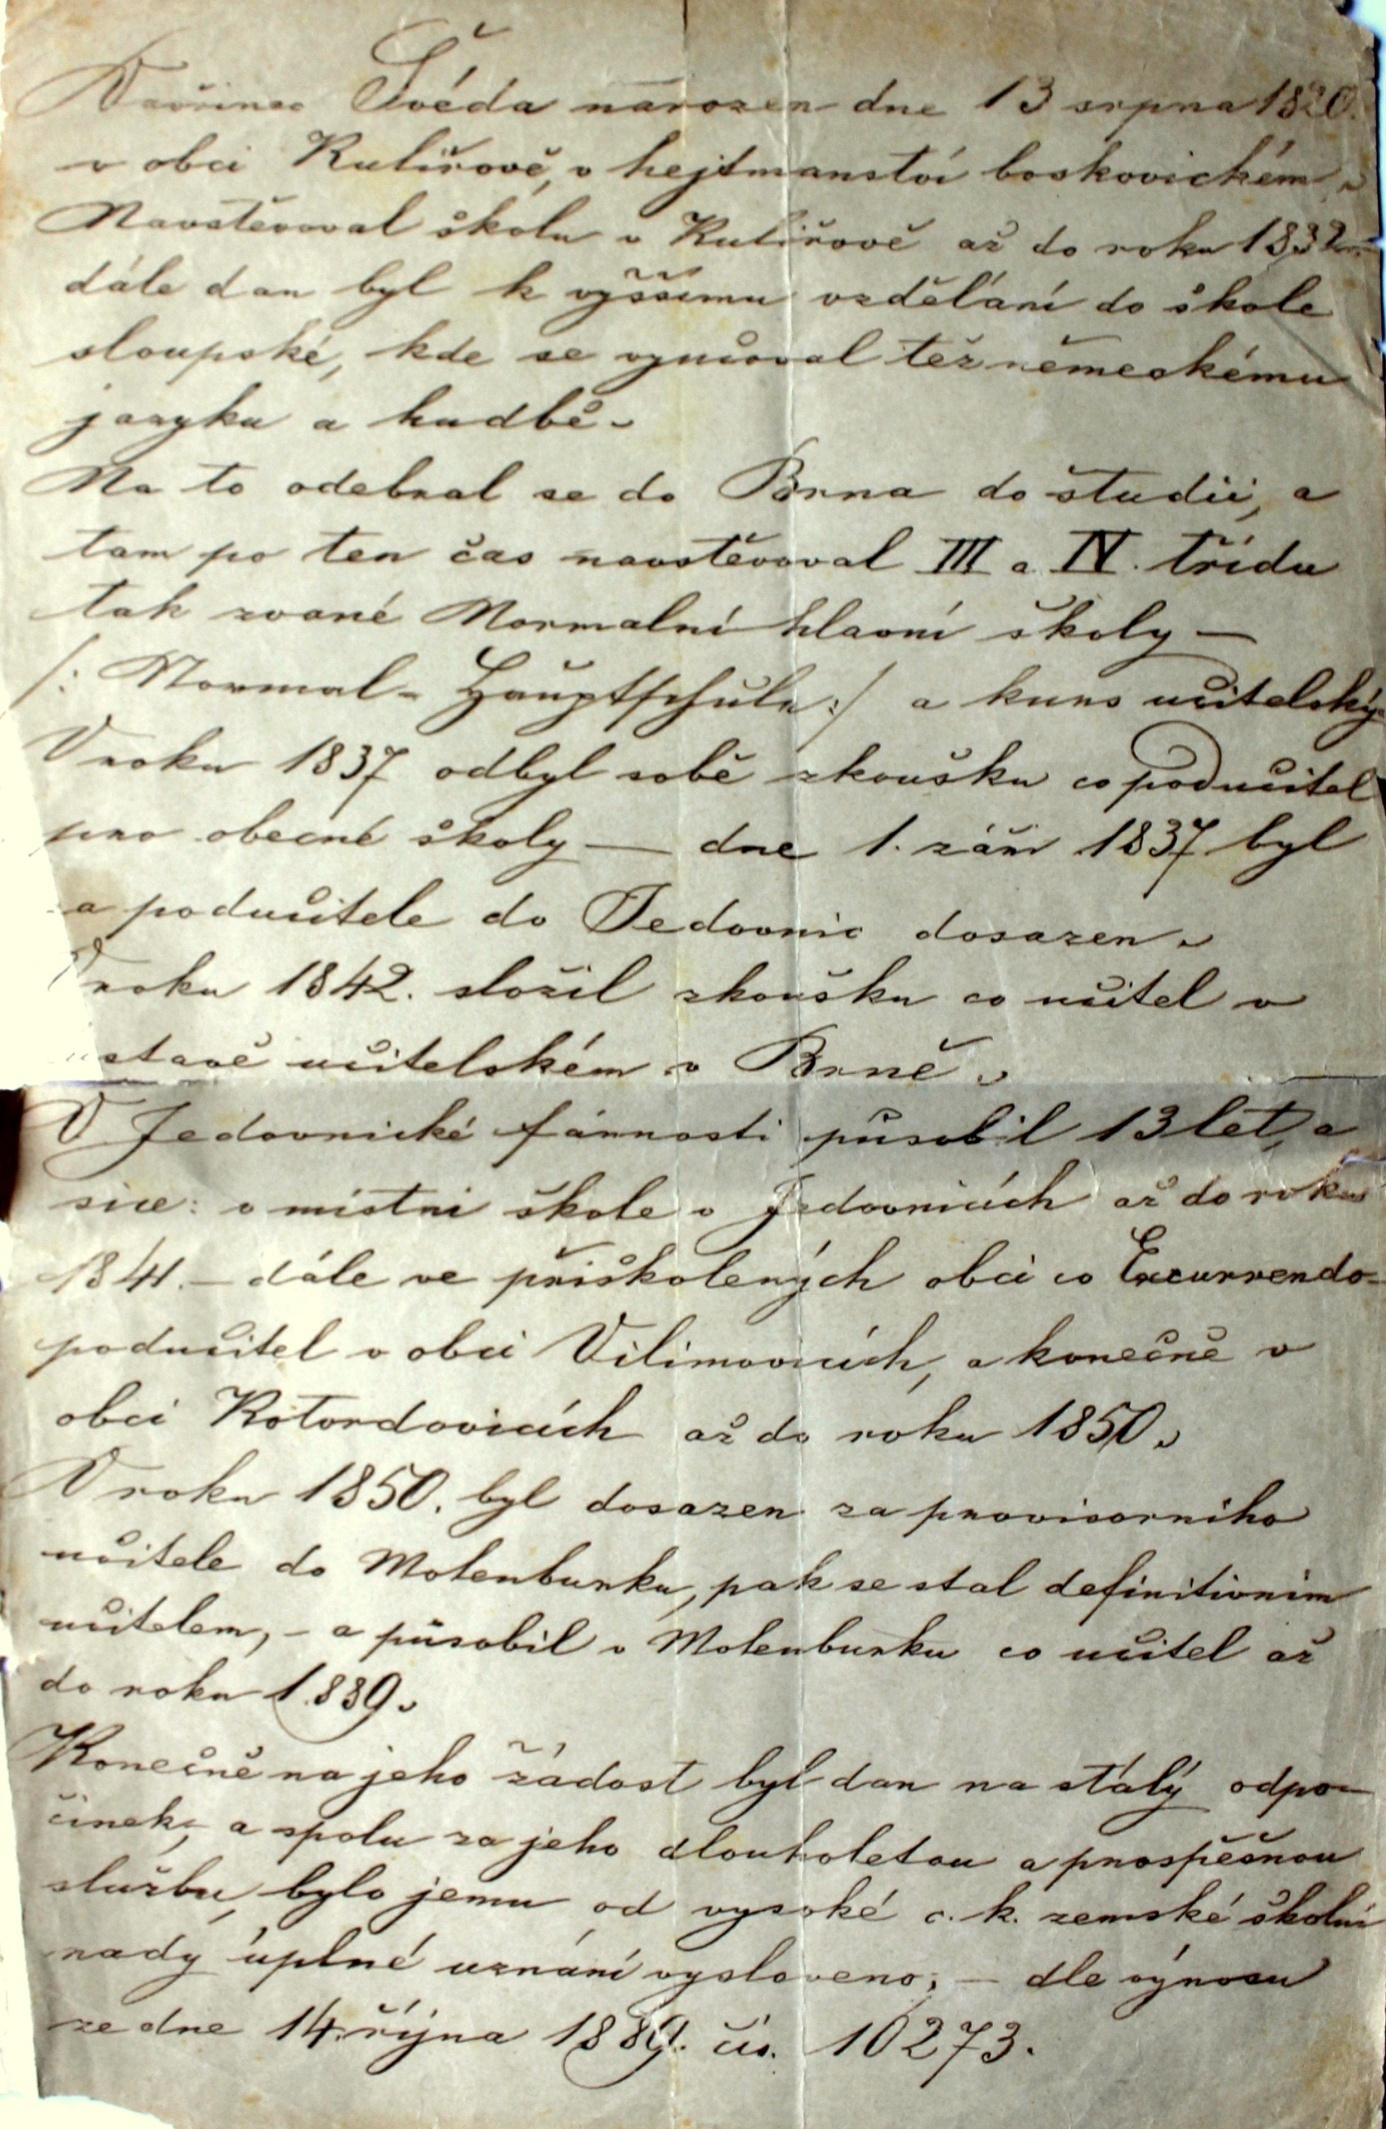 Vavřinec Švéda narozen dne 13 srpna 1820.
v obci Kulířově, v hejtmanství boskovickém.
Navštěvoval školu v Kulířově až do roku 1832
dále dan byl k vyššimu vzdělání do škole
sloupské, kde se vyučoval též německému
jazyku a hudbě.
Na to odebral se do Brna do študií, a
tam po ten čas navštěvoval III a IV. třídu
tak zvané Normalní hlavní školy —
/: Normal- Hauptschule :/ a kurs učitelský
V roku 1837 odbyl sobě zkoušku co podučitel
pro obecné školy — dne 1. září 1837 byl
a podučitele do Jedovnic dosazen.
V roku 1842. složil zkoušku co učitel v
ustavě učitelském v Brně.
V Jedovnické fárnosti působil 13 let, a
sice: v místní škole v Jedovnicích až do roku
1841. — dále ve přiškolených obci co Excurrendo-
podučitel v obci Vilimovicích, a konečně v
obci Kotvrdovicích až do roku 1850.
V roku 1850. byl dosazen za provisorního
učitele do Molenburku, pak se stal definitivním
učitelem, - a působil v Molenburku co učitel až
do roku 1889.
Konečně na jeho žádost byl dan na stálý odpo-
činek, a spolu za jeho dlouholetou a prospěšnou
službu, bylo jemu od vysoké c. k. zemské školní
rady úplné uznání vysloveno, — dle výnosu
ze dne 14. října 1889. čís. 10273.